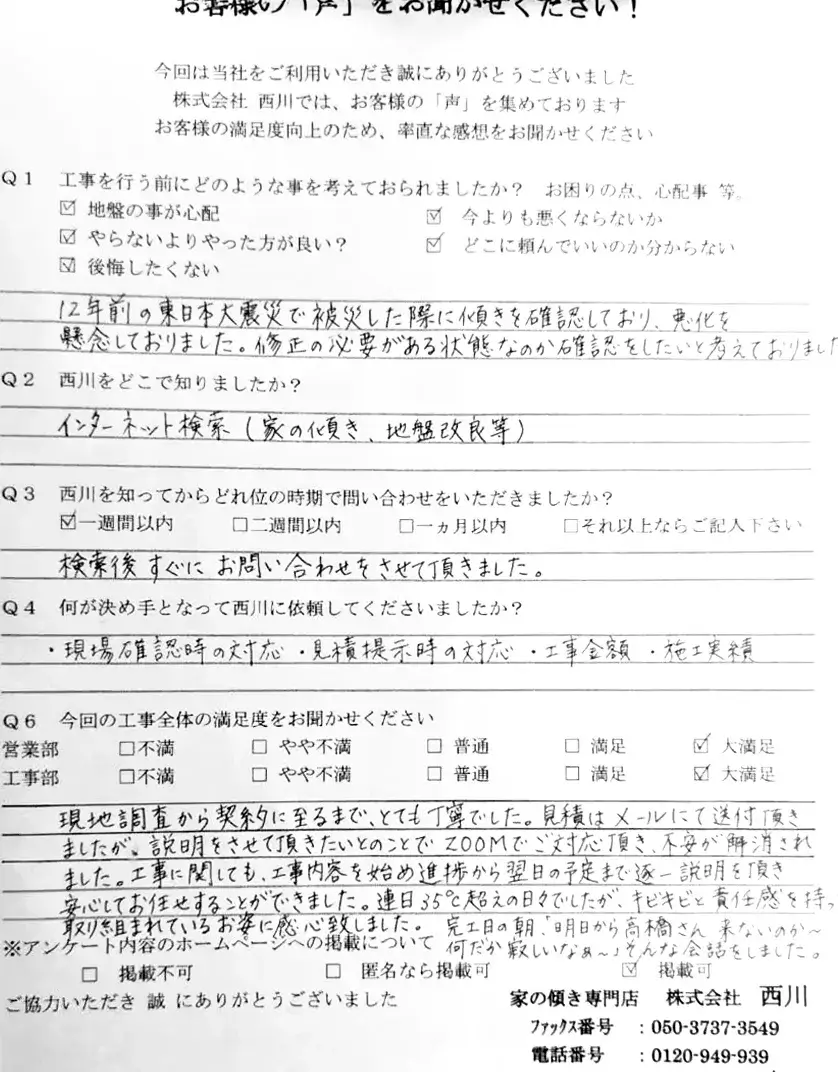 お客様の「声」をお聞かせください！
今回は当社をご利用いただき誠にありがとうございました
株式会社 西川では、お客様の「声」を集めております
お客様の満足度向上のため、率直な感想をお聞かせください
Q1 工事を行う前にどのような事を考えておられましたか？ お困りの点、心配事 等。
☑ 地盤の事が心配 ☑ 今よりも悪くならないか
☑ やらないよりやった方が良い？ ☑ どこに頼んでいいのか分からない
☑ 後悔したくない
12年前の東日本大震災で被災した際に傾きを確認しており、悪化を
懸念しておりました。修正の必要がある状態なのか確認をしたいと考えておりました
Q2 西川をどこで知りましたか？
インターネット検索（家の傾き、地盤改良等）
Q3 西川を知ってからどれ位の時期で問い合わせをいただきましたか？
☑一週間以内 □二週間以内 □一ヵ月以内 □それ以上ならご記入下さい
検索後すぐにお問い合わせをさせて頂きました。
Q4 何が決め手となって西川に依頼してくださいましたか？
・現場確認時の対応 ・見積提示時の対応 ・工事金額 ・施工実績
Q6 今回の工事全体の満足度をお聞かせください
営業部 □不満 □ やや不満 □ 普通 □ 満足 ☑ 大満足
工事部 □不満 □ やや不満 □ 普通 □ 満足 ☑ 大満足
現地調査から契約に至るまで、とても丁寧でした。見積はメールにて送付頂き
ましたが、説明をさせて頂きたいとのことでZOOMでご対応頂き、不安が解消され
ました。工事に関しても、工事内容を始め進捗から翌日の予定まで逐一説明を頂き
安心してお任せすることができました。連日35℃超えの日々でしたが、キビキビと責任感を持っ
取り組まれているお姿に感心致しました。 完工日の朝、「明日から高橋さん 来ないのか〜
※アンケート内容のホームページへの掲載について 何だか寂しいなぁ〜」そんな会話をしました。
□ 掲載不可 □ 匿名なら掲載可 ☑ 掲載可
ご協力いただき 誠 にありがとうございました 家の傾き専門店 株式会社 西川
ファックス番号 ：050-3737-3549
電話番号 ：0120-949-939